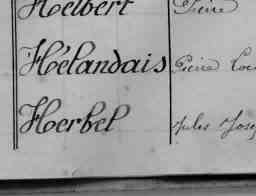 Helbert Pierre
Hélandais Pierre
Herbel Jules